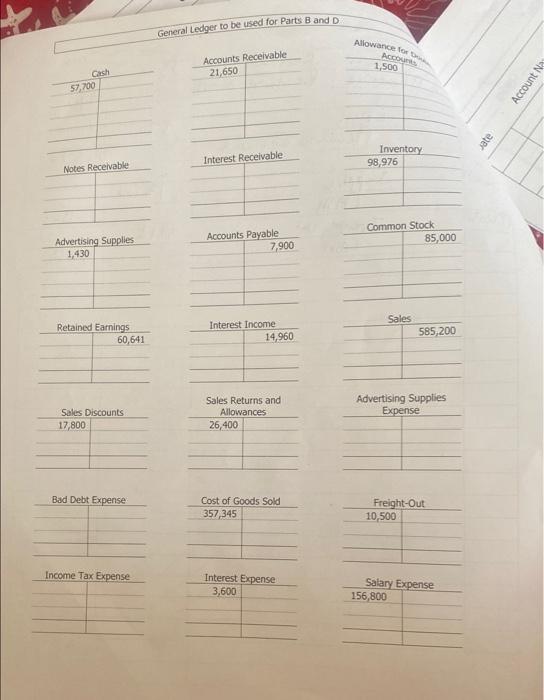 General Ledger to be used for Parts B and D
Cash
57,700
Accounts Receivable
21,650
Allowance for
Accounts
1,500
Notes Receivable
Interest Receivable
Inventory
98,976
Advertising Supplies
1,430
Accounts Payable
7,900
Common Stock
85,000
Retained Earnings
60,641
Interest Income
14,960
Sales
585,200
Sales Discounts
17,800
Sales Returns and
Allowances
26,400
Advertising Supplies
Expense
Bad Debt Expense
Cost of Goods Sold
357,345
Freight-Out
10,500
Income Tax Expense
Interest Expense
3,600
Salary Expense
156,800
Account